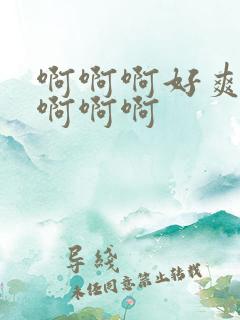 啊啊啊好爽
啊啊啊
导线
未经同意禁止转载